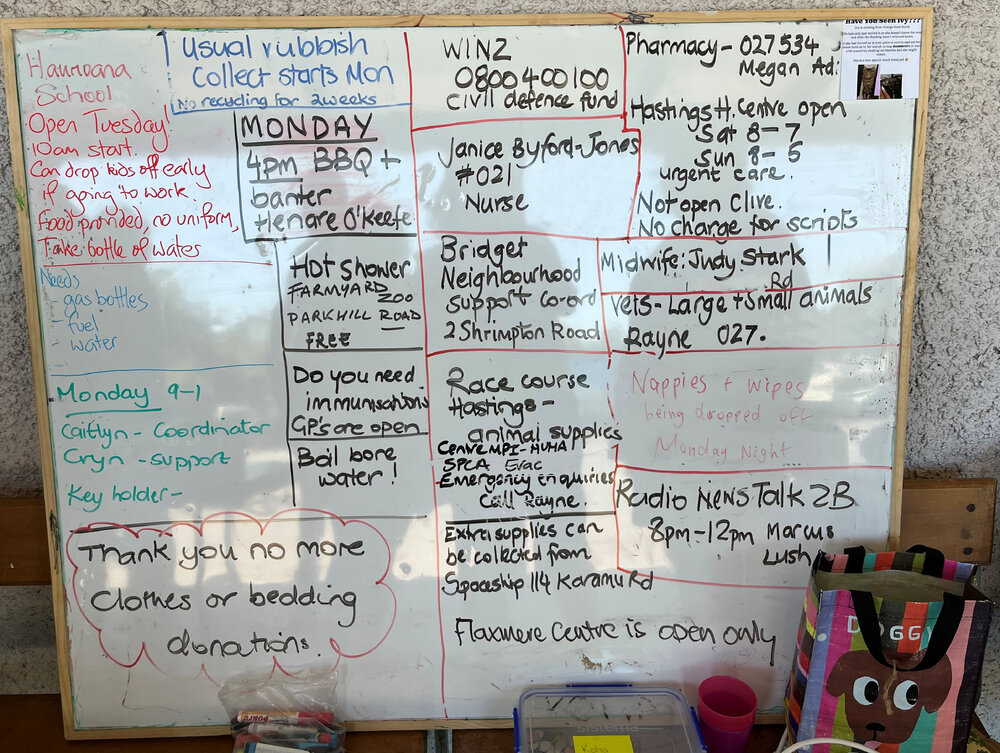 Haumoana
School
Open Tuesday!
10am start.
Can drop kids off early
if going to work.
Food provided, no uniform,
Take bottle of water
Needs
- gas bottles
- fuel
- water
Monday 9-1
Caitlyn - Coordinator
Cryn - support
Key holder -
Thank you no more
Clothes or bedding
donations.
Usual rubbish
Collect starts Mon
No recycling for 2 weeks
MONDAY
4pm BBQ +
banter
Henare O'Keefe
Hot Shower
FARMYARD ZOO
PARKHILL ROAD
FREE
Do you need
immunisations
GP's are open
Boil bore
water!
WINZ
0800400100
Civil defence fund
Janice Byford-Jones
#021
Nurse
Bridget
Neighbourhood
Support Co-ord
2 Shrimpton Road
Race course
Hastings -
animal supplies
Centre MPI - HUHA
SPCA Evac
Emergency enquiries
Call Rayne.
Extra supplies can
be collected from
Spaceship 114 Karamu Rd
Flaxmere Centre is open only
Pharmacy - 027 534
Megan Adi
Hastings H. Centre open
Sat 8-7
Sun 8-5
urgent care.
Not open Clive.
No charge for scripts
Midwife: Judy Stark
Rd
Vets - Large + Small animals
Rayne 027.
Nappies + Wipes
being dropped off
Monday Night
Radio News Talk ZB
8pm-12pm Marcus
Lush
Have You Seen Ivy???
DOGGY
Koha